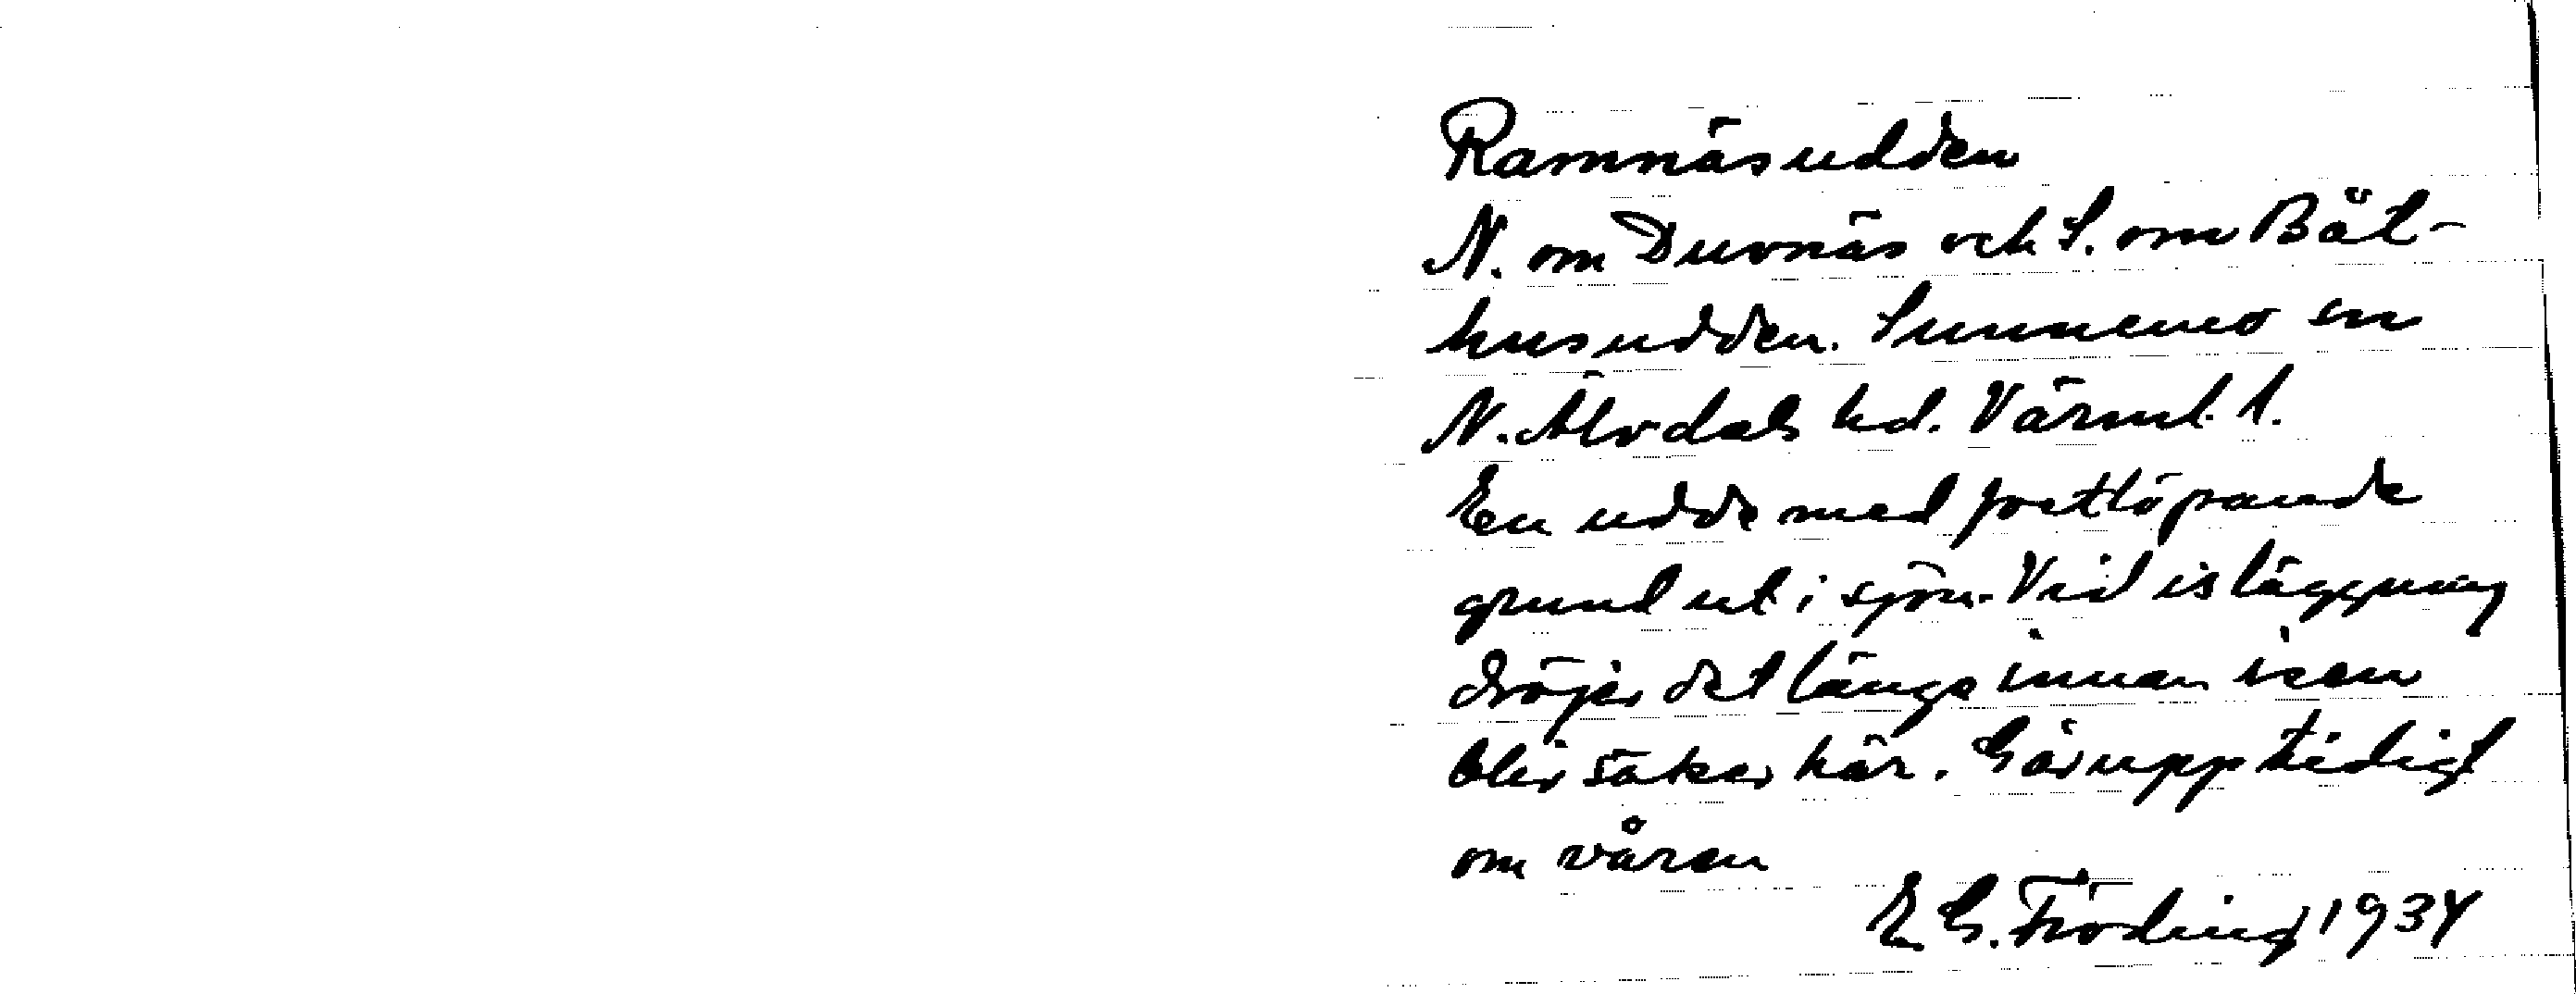 Ramnäsudden
N. om Duvnäs och S. om Båt-
husudden. Sunnemo sn
N. Älvdals hd. Värml. l.
En udde med fortlöpande
grund ut i sjön. Vid isläggning
dröjer det länge innan isen
blir säker här. Går upp tidigt
om våren
E. G. Fröding 1934